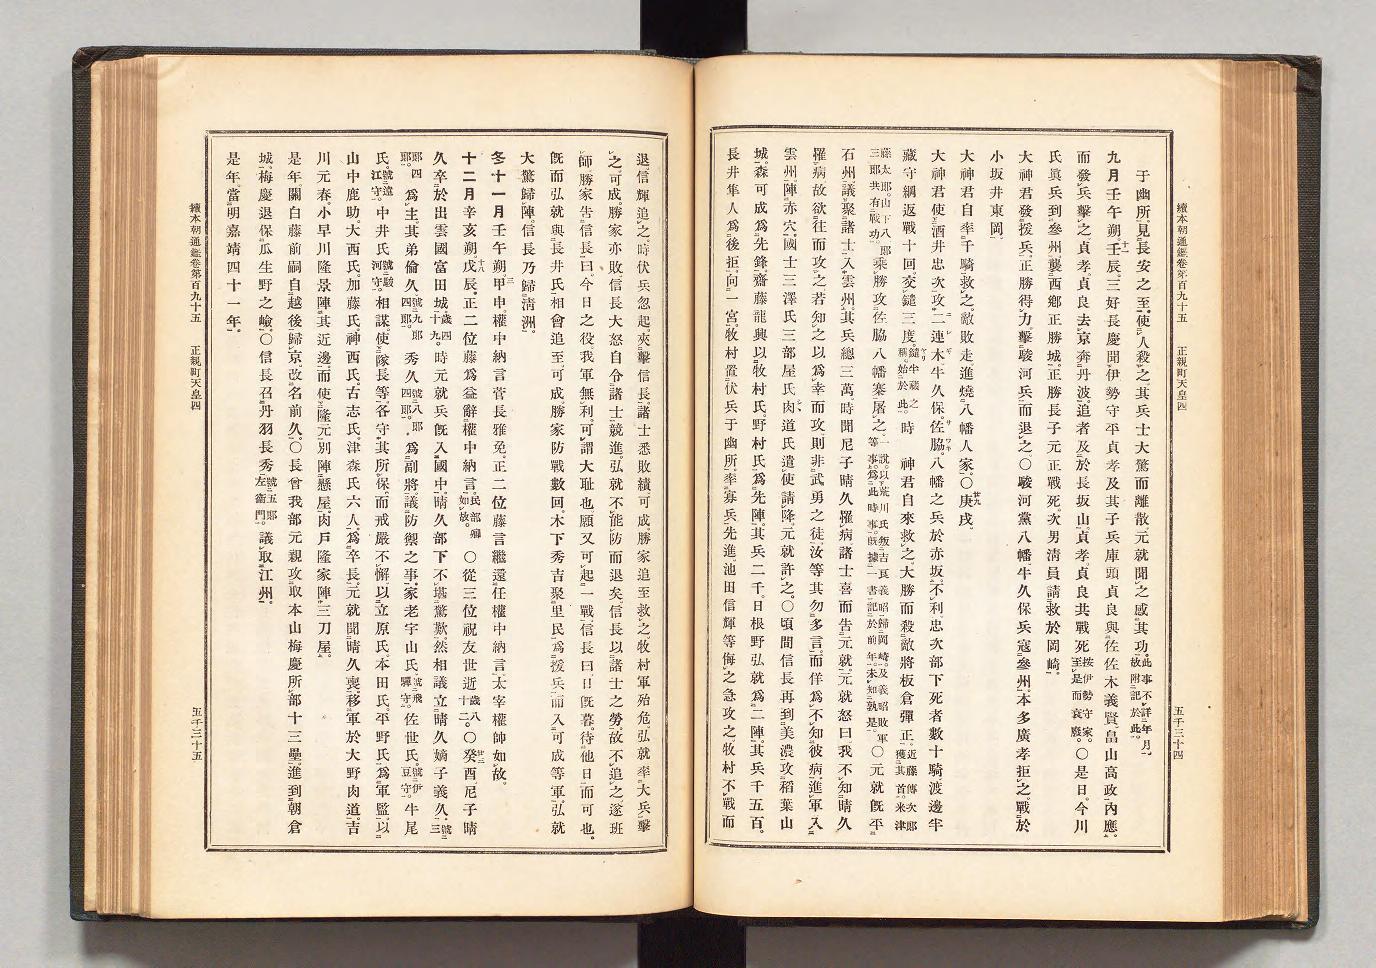 續本朝通鑑卷第百九十五 正親町天皇四
五千三十四
于幽所見長安之至使人殺之其兵士大驚而離散元就聞之感其功此事不詳年月故附記於此
九月壬午朔十一壬辰三好長慶聞伊勢守平貞孝及其子兵庫頭貞良與佐佐木義賢畠山高政內應
而發兵擊之貞孝貞良去京奔丹波追者及於長坂山貞孝貞良共戰死按伊勢守家至是而衰廢〇是日今川
氏眞兵到參州襲西鄕正勝城正勝長子元正戰死次男淸員請救於岡崎
大神君發援兵正勝得力擊駿河兵而退之〇駿河黨八幡牛久保兵寇參州本多廣孝拒之戰於
小坂井東岡
大神君自率千騎救之敵敗走進燒八幡人家〇廿九庚戌
大神君使酒井忠次攻二連木牛久保佐脇八幡之兵於赤坂不利忠次部下死者數十騎渡邊半
藏守綱返戰十回交鑓三度鑓半藏之稱始於此時 神君自來救之大勝而殺敵將板倉彈正近藤傳次郞獲其首米津
藤太郞山下八郞三郞共有戰功乘勝攻佐脇八幡寨屠之一說以荒川氏叛吉良義昭歸岡崎及義昭敗軍等事爲此時事旣據一書記於前年未知孰是〇元就旣平
石州議聚諸士入雲州其兵總三萬時聞尼子晴久罹病諸士喜而告元就元就怒曰我不知晴久
罹病故欲往而攻之若知之以爲幸而攻則非武勇之徒汝等其勿多言而佯爲不知彼病進軍入
雲州陣赤穴國士三澤氏三部屋氏肉道氏遣使請降元就許之〇頃間信長再到美濃攻稻葉山
城森可成爲先鋒齋藤龍興以牧村氏野村氏爲先陣其兵二千日根野弘就爲二陣其兵千五百
長井隼人爲後拒向一宮牧村置伏兵于幽所率寡兵先進池田信輝等侮之急攻之牧村不戰而
退信輝追之時伏兵忽起夾擊信長諸士悉敗績可成勝家追至救之牧村軍殆危弘就率大兵擊
之可成勝家亦敗信長大怒自令諸士競進弘就不能防而退矣信長以諸士之勞故不追之遂班
師勝家告信長曰今日之役我軍無利可謂大耻也願又可起一戰信長曰日旣暮待他日而可也
旣而弘就與長井氏相會追至可成勝家防戰數回木下秀吉聚里民爲援兵而入可成等軍弘就
大驚歸陣信長乃歸淸洲
冬十一月壬午朔三甲申權中納言菅長雅免正二位藤言繼還任權中納言太宰權帥如故
十二月辛亥朔十八戊辰正二位藤爲益辭權中納言民部卿如故〇從三位祝友世逝歲八十二〇廿三癸酉尼子晴
久卒於出雲國富田城歲四十九時元就兵旣入國中晴久部下不堪驚歎然相議立晴久嫡子義久號三
郞四郞爲主其弟倫久號九郞四郞秀久號八郞四郞爲副將議防禦之事家老宇山氏號飛驒守佐世氏號伊豆守牛尾
氏號遠江守中井氏號駿河守相謀使隊長等各守其所保而戒嚴不懈以立原氏本田氏平野氏爲軍監以
山中鹿助大西氏加藤氏神西氏古志氏津森氏六人爲卒長元就聞晴久喪移軍於大野肉道吉
川元春小早川隆景陣其近邊而使隆元別陣懸屋肉戶隆家陣三刀屋
是年關白藤前嗣自越後歸京改名前久〇長曾我部元親攻取本山梅慶所部十三壘進到朝倉
城梅慶退保瓜生野之嶮〇信長召丹羽長秀號五郞左衞門議取江州
是年當明嘉靖四十一年
續本朝通鑑卷第百九十五 正親町天皇四
五千三十五